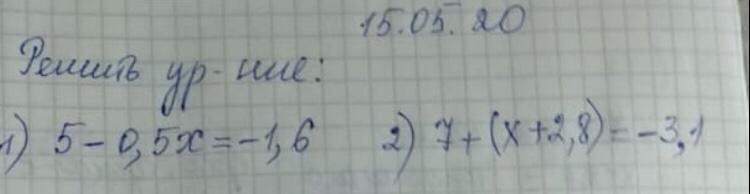 15.05.20
Решить ур-ние:
1) 5-0,5x=-1,6 2) 7+(x+2,8)=-3,1